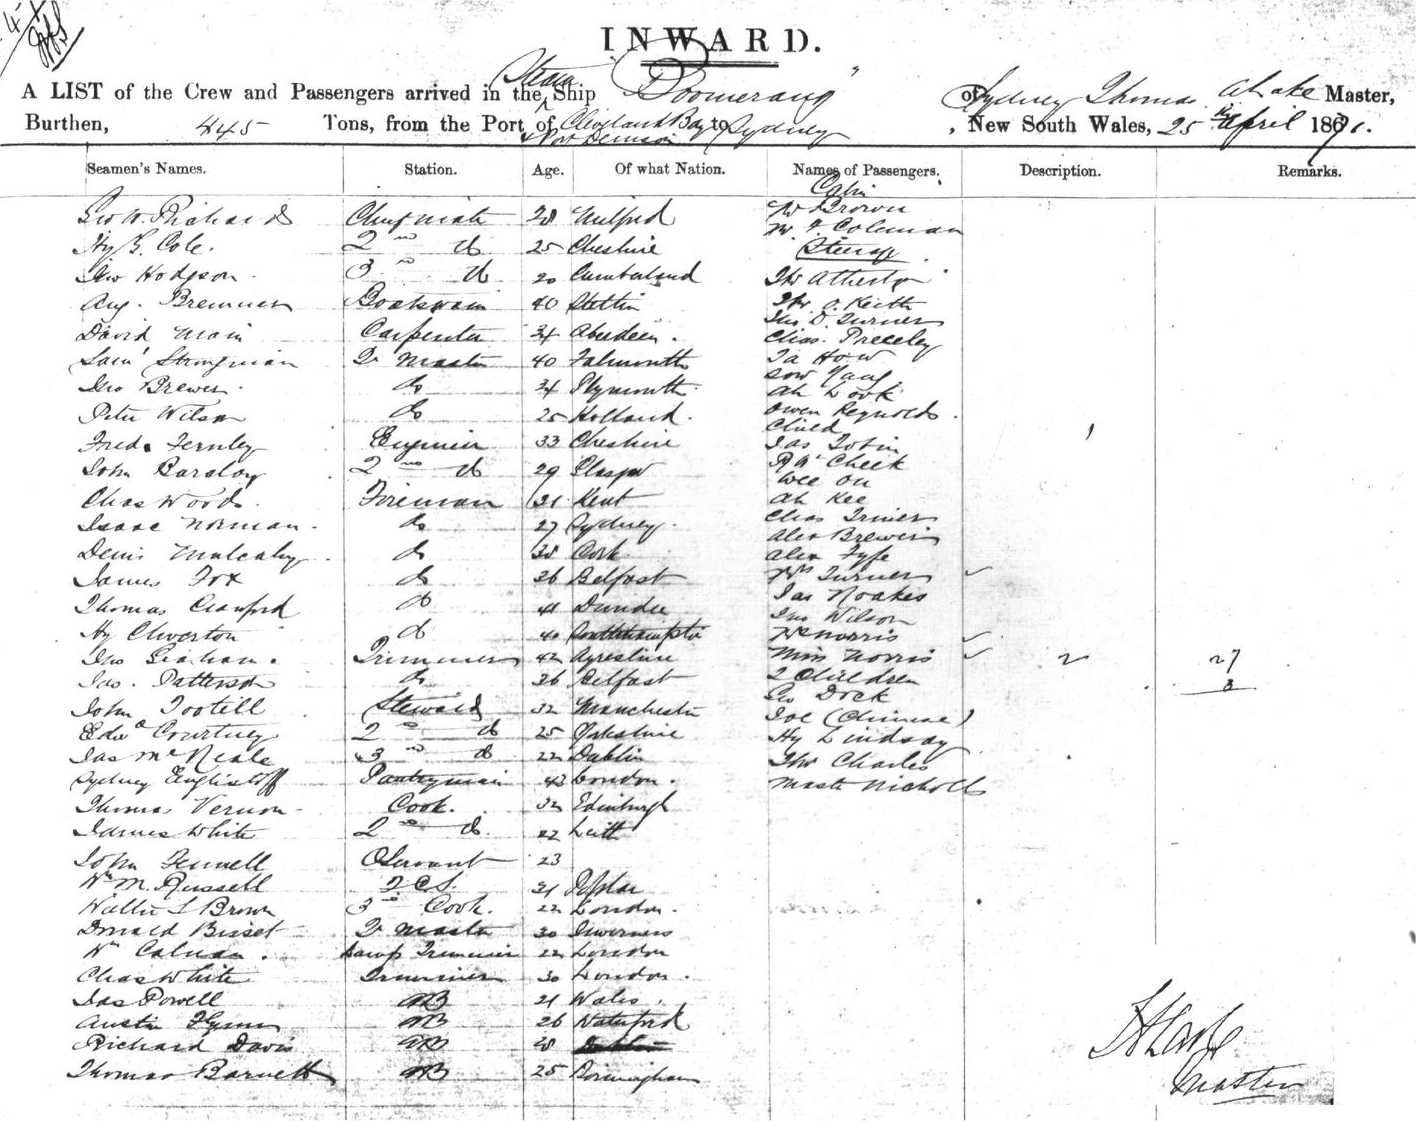 INWARD.
A LIST of the Crew and Passengers arrived in the Steam Ship "Boomerang" of Sydney Thomas A Lake Master,
Burthen, 445 Tons, from the Port of Cleveland Bay & Port Denison to Sydney, New South Wales, 25th April 1871.
Seamen's Names. Station. Age. Of what Nation. Names of Passengers. Description. Remarks.
Cabin
Geo W. Richards Chief Mate 28 Milford Mr Brown
Mr F Coleman
Hy G. Cole. 2nd do 25 Cheshire Steerage
Jno Hodgson 3rd do 20 Cumberland Thos Atherton
Aug. Bremner Boatswain 40 Stettin Thos O. Keith
Jno D. Turner
David Main Carpenter 34 Aberdeen. Chas. Preceley
Saml Strongman Qr Master 40 Falmouth Ta How
Sow Yang
Jno Brewer do 34 Plymouth Ah Look
Peter Wilson do 25 Holland. Owen Reynolds.
Child 1
Fred. Fernley Engineer 33 Cheshire Jas Tobin
John Barclay 2nd do 29 Glasgow Rd Cheek
Wee On
Chas Woods. Fireman 31 Kent Ah Kee
Isaac Norman. do 27 Sydney. Chas Triner
Alex Brewer
Denis Mulcahy do 38 Cork Alex Fyfe
James Fox do 36 Belfast Mrs Turner
Jas Noakes
Thomas Crawford do 41 Dundee Jno Wilson
Hy Cliverton do 40 Southampton Mr Norris
Jno Graham. Trimmer 42 Ayreshire Miss Norris 2 27
Jas. Patterson do 36 Belfast 2 Children 3
Geo Dock
John Tootill Steward 32 Manchester Joe (Chinese)
Edwd Courtney 2nd do 25 Yorkshire Hy Lindsay
Jas McNeale 3rd do 22 Dublin Thos Charles
Sydney Englistoff Pantryman 43 London. Mastr Nicholls
Thomas Vernon Cook. 32 Edinburgh
James White 2nd do 22 Leith
John Fennell O Servant 23
Wm M. Russell 2 C S. 31 Poplar
Walter S Brown 3rd Cook. 22 London.
Donald Bisset Qr Master 30 Inverness
Wm Calnan. Lamp Trimmer 22 London
Chas White Trimmer 30 London.
Jas Powell AB 21 Wales.
Austin Flynn AB 26 Waterford
Richard Davis AB 28
Thomas Barnett AB 25 Birmingham
T A Lake
Master